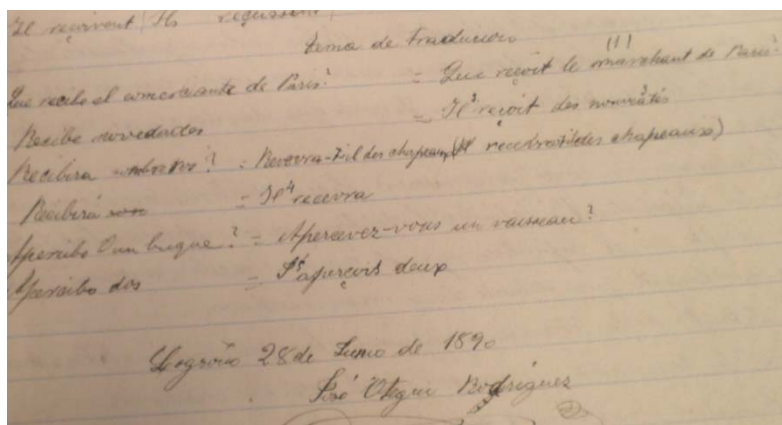 Il reçoivent (Ils reçussent)
Tema de traducion
Que recibe el comerciante de Paris? = Que reçoit le marchant de Paris?
Recibe novedades = Il reçoit des nouvautés
Recibira sombreros? = Recevra-t-il des chapeaux (Il des chapeaux)
Recibirá = Il recevra
Apercibe V un buque? = Apercevez-vous un vaisseau?
Apercibo dos = J'aperçois deux
Logroño 28 de Junio de 1890
José Otegui Rodriguez